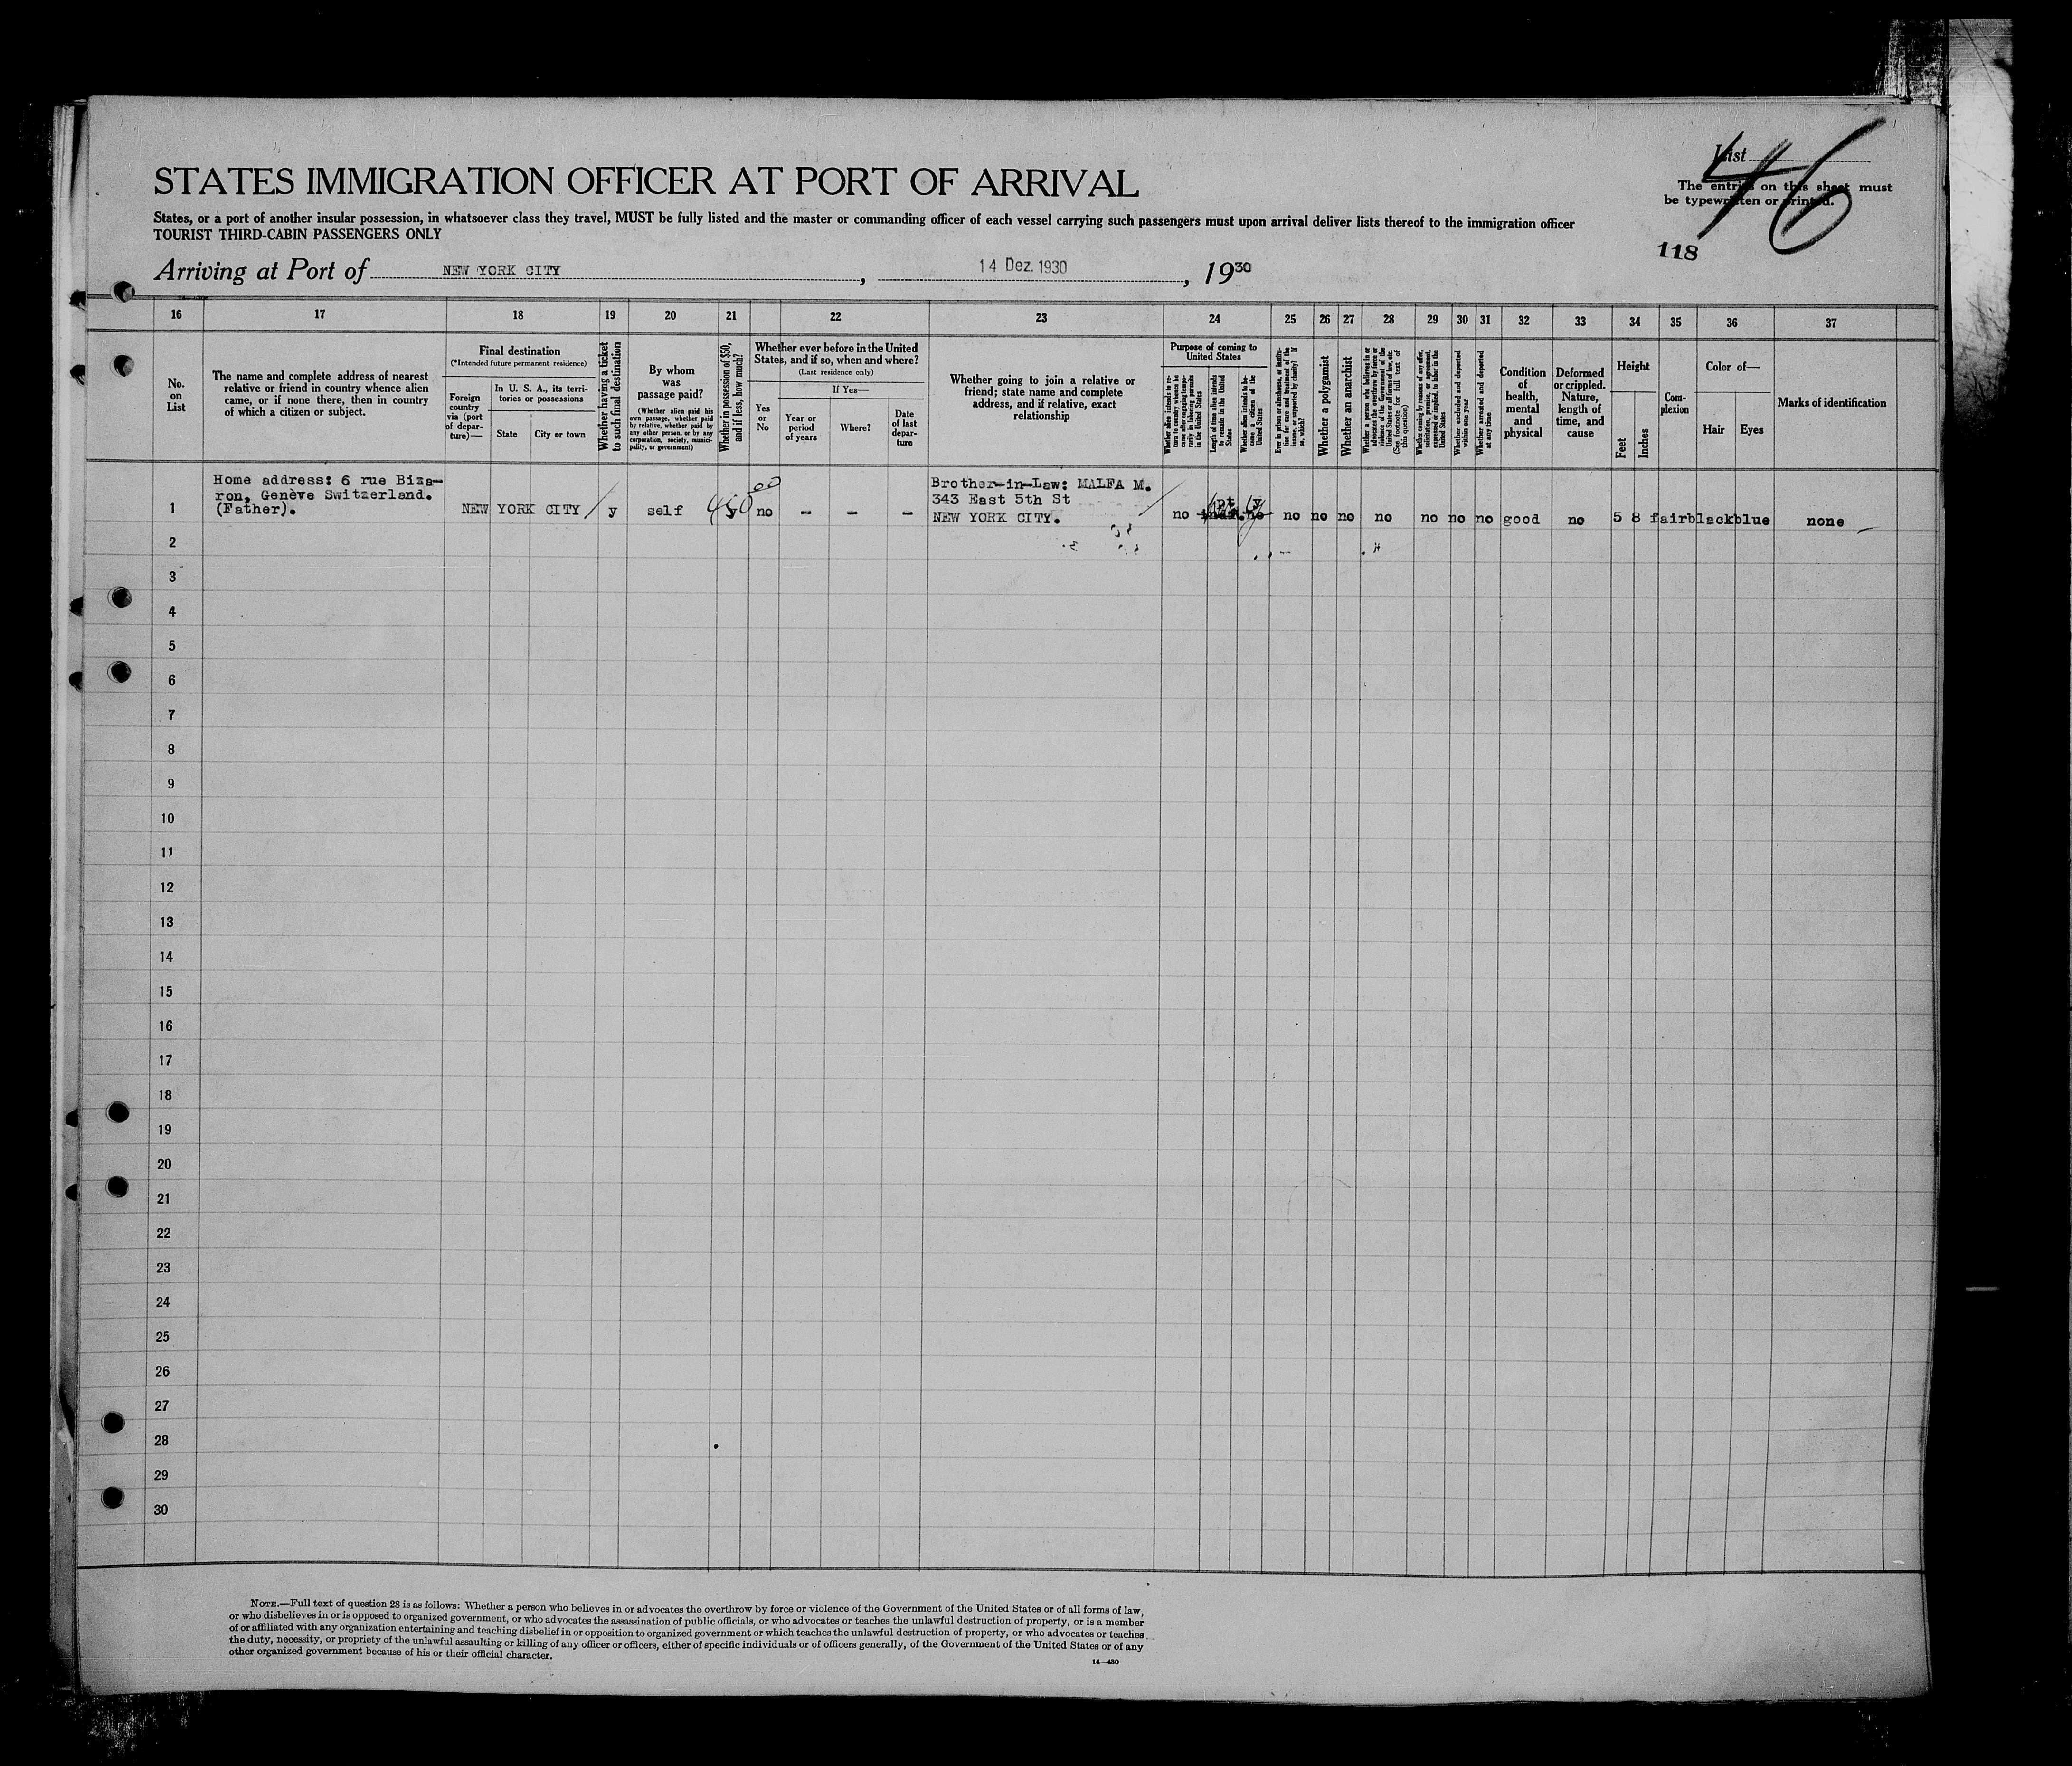 List
46
The entries on this sheet must
be typewritten or printed.
118
STATES IMMIGRATION OFFICER AT PORT OF ARRIVAL
States, or a port of another insular possession, in whatsoever class they travel, MUST be fully listed and the master or commanding officer of each vessel carrying such passengers must upon arrival deliver lists thereof to the immigration officer
TOURIST THIRD-CABIN PASSENGERS ONLY
Arriving at Port of NEW YORK CITY, 14 Dez. 1930, 1930
16 17 18 19 20 21 22 23 24 25 26 27 28 29 30 31 32 33 34 35 36 37
No.
on
List
The name and complete address of nearest
relative or friend in country whence alien
came, or if none there, then in country
of which a citizen or subject.
Final destination
(*Intended future permanent residence)
Foreign
country
via (port
of depar-
ture)—
In U. S. A., its terri-
tories or possessions
State
City or town
Whether having a ticket
to such final destination
By whom
was
passage paid?
(Whether alien paid his
own passage, whether paid
by relative, whether paid
by any other person, or by any
corporation, society, munici-
pality, or government)
Whether in possession of $50,
and if less, how much?
Whether ever before in the United
States, and if so, when and where?
(Last residence only)
Yes
or
No
If Yes—
Year or
period
of years
Where?
Date
of last
depar-
ture
Whether going to join a relative or
friend; state name and complete
address, and if relative, exact
relationship
Purpose of coming to
United States
Whether alien intends to re-
turn to country whence he
came after engaging tempo-
rarily in laboring pursuits
in the United States
Length of time alien intends
to remain in the United
States
Whether alien intends to be-
come a citizen of the
United States
Ever in prison or almshouse, or institu-
tion for care and treatment of the
insane, or supported by charity? If
so, which?
Whether a polygamist
Whether an anarchist
Whether a person who believes in or
advocates the overthrow by force or
violence of the Government of the
United States or all forms of law, etc.
(See footnote for full text of
this question)
Whether coming by reasons of any offer,
solicitation, promise, or agreement,
expressed or implied, to labor in the
United States
Whether excluded and deported
within one year
Whether arrested and deported
at any time
Condition
of
health,
mental
and
physical
Deformed
or crippled.
Nature,
length of
time, and
cause
Height
Feet
Inches
Com-
plexion
Color of—
Hair
Eyes
Marks of identification
Home address: 6 rue Biza-
ron, Genève Switzerland.
(Father).
1 NEW YORK CITY y self 450 00 no - - -
Brother-in-Law: MALFA M.
343 East 5th St
NEW YORK CITY.
no no no no no no no no no good no 5 8 fair black blue none
2
3
4
5
6
7
8
9
10
11
12
13
14
15
16
17
18
19
20
21
22
23
24
25
26
27
28
29
30
NOTE.—Full text of question 28 is as follows: Whether a person who believes in or advocates the overthrow by force or violence of the Government of the United States or of all forms of law,
or who disbelieves in or is opposed to organized government, or who advocates the assassination of public officials, or who advocates or teaches the unlawful destruction of property, or is a member
of or affiliated with any organization entertaining and teaching disbelief in or opposition to organized government or which teaches the unlawful destruction of property, or who advocates or teaches
the duty, necessity, or propriety of the unlawful assaulting or killing of any officer or officers, either of specific individuals or of officers generally, of the Government of the United States or of any
other organized government because of his or their official character.
14—430